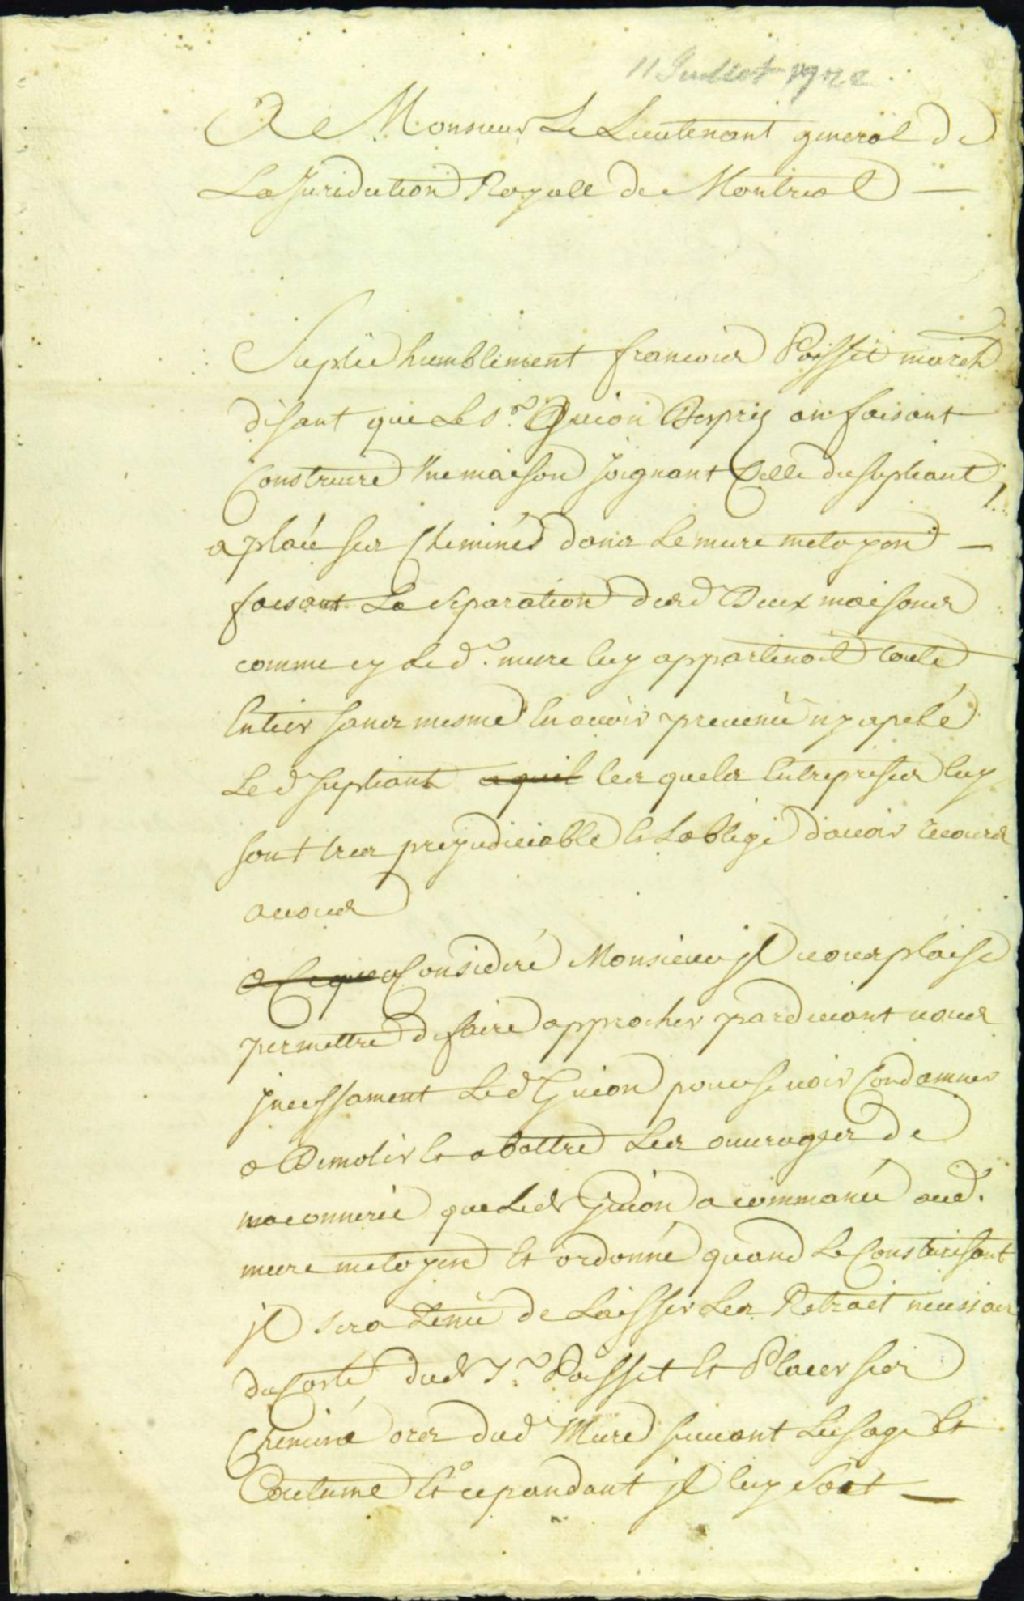 11 Juillet
A Monsieur Le Lieutenant general de
La Juridiction Royalle de Montreal
Suplie humblement francois Poisset march
disant que le Sr. Guion Desprez en faisant
Construire Une maison Joignant Celle du supliant
a placé ses Cheminéé dans Le mure metoyen
faisant La separation desd Deux maisons
comme sy Led. mure luy appartenoit toute
Entier sans mesme En avoir prevenüe ny apelé
Led supliant a quil les quels Entreprises luy
sont tres prejudiciable Et Loblige davoir recours
avous
a Ce que Consideré Monsieur Jl vous plaise
permettre de faire approcher pardevant vous
Jncessament Led Guion pour se voir Condamner
a Demolir Et abattre Les ouvrages de
maconnerie que Led Guion a commancé aud.
mure metoyen Et ordonné quand Le Construisant
Jl sera tenüe de Laisser Les Retrait necessaire
du Costé dud Sr Poisset Et Placer ses
Cheminé ors dud Mure suivant Lusage Et
Coutume Et cependant Jl luy soit